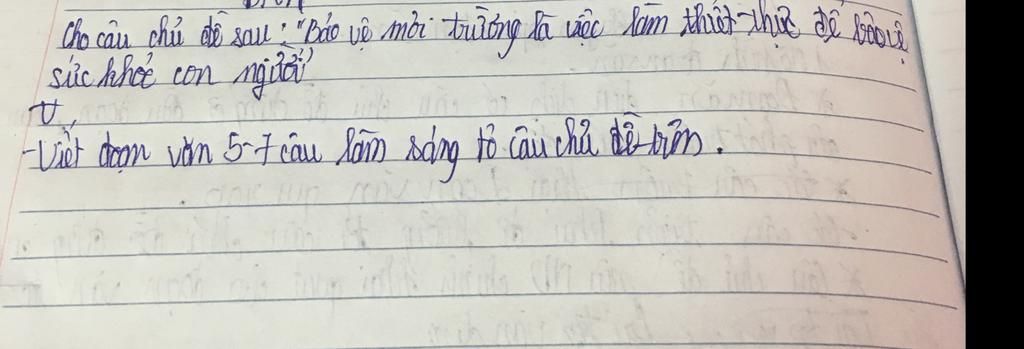 Cho câu chủ đề sau: "Bảo vệ môi trường là việc làm thiết thực để bảo vệ
sức khỏe con người"
-Viết đoạn văn 5-7 câu làm sáng tỏ câu chủ đề trên.